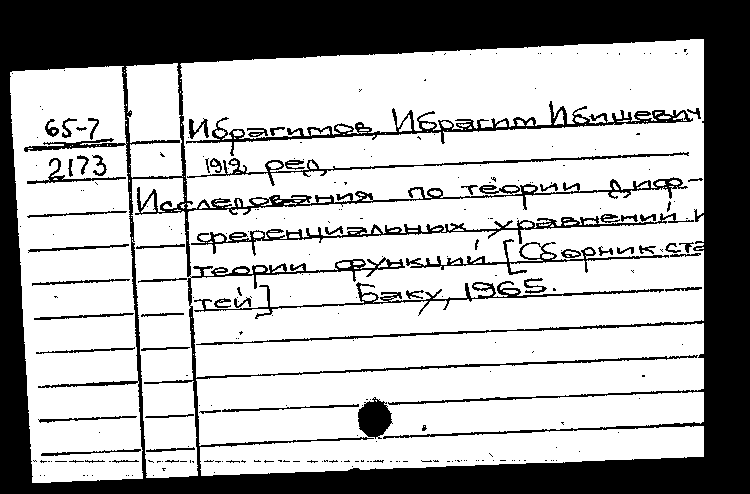 65-7 Ибрагимов, Ибрагим Ибишевич
2173 1912, ред.
Исследования по теории диф-
ференциальных уравнений и
теории функций [Сборник ста
тей] Баку, 1965.